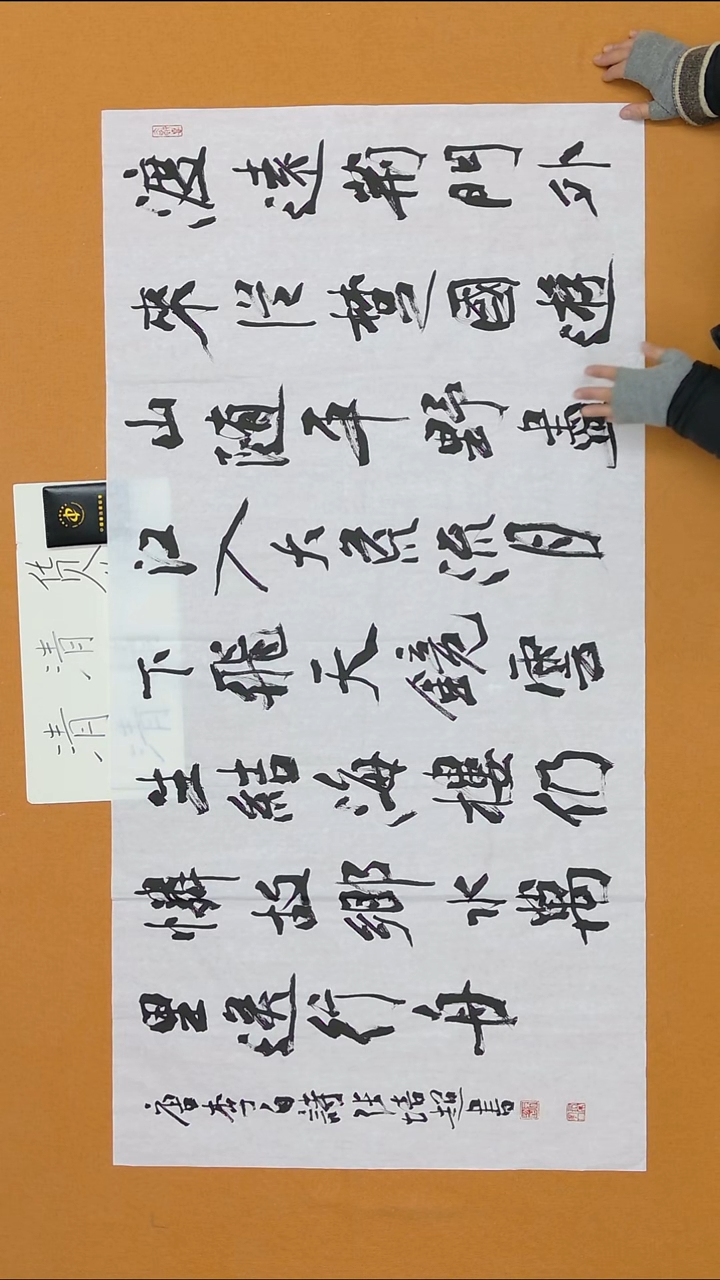 渡遠荆門外
來從楚國遊
山隨平野盡
江入大荒流月
下飛天鏡雲
生結海樓仍
憐故鄉水萬
里送行舟
唐李白詩任培超書
清清货
清